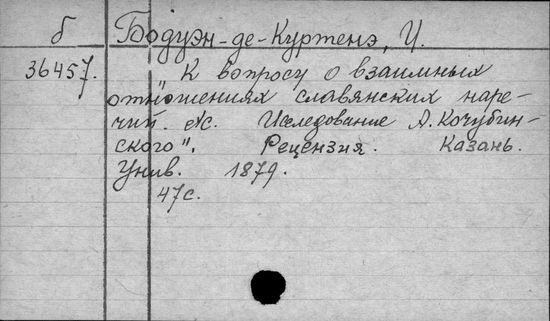 б Бодуэн-де-Куртенэ, И.
36457. "К вопросу о взаимных
отношениях славянских наре-
чий. Исследование А. Кочубин-
ского". Рецензия. Казань.
Унив. 1879.
47с.